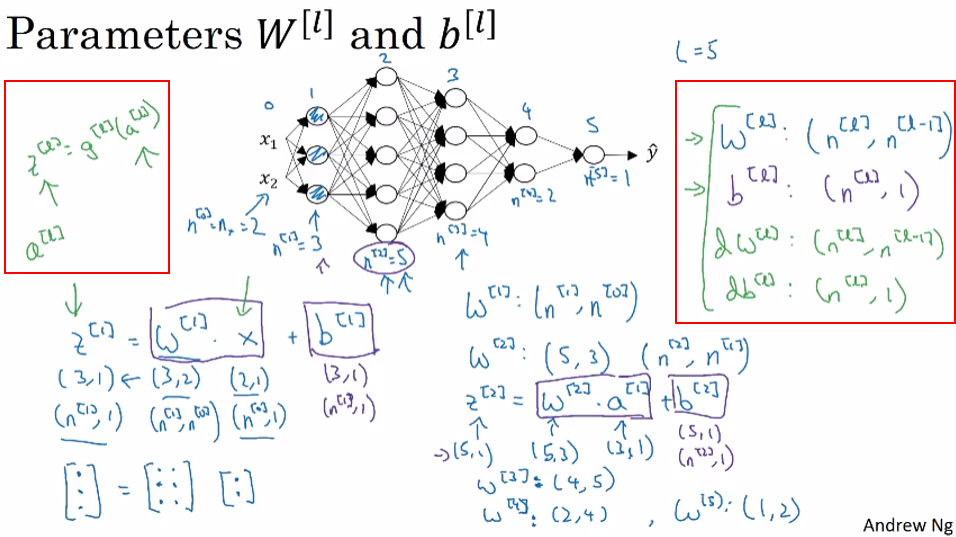 Parameters W^[l] and b^[l]
L = 5
z^[l] = g^[l](a^[l])
a^[l]
0
1
2
3
4
5
x₁
x₂
ŷ
n^[0] = nₓ = 2
n^[1] = 3
n^[2] = 5
n^[3] = 4
n^[4] = 2
n^[5] = 1
→ W^[l] : (n^[l], n^[l-1])
→ b^[l] : (n^[l], 1)
dW^[l] : (n^[l], n^[l-1])
db^[l] : (n^[l], 1)
z^[1] = W^[1] · x + b^[1]
(3,1) ← (3,2) (2,1) (3,1)
(n^[1], 1) (n^[1], n^[0]) (n^[0], 1) (n^[1], 1)
W^[1] : (n^[1], n^[0])
W^[2] : (5, 3) (n^[2], n^[1])
z^[2] = W^[2] · a^[1] + b^[2]
→ (5,1) (5,3) (3,1) (5,1)
(n^[2], 1)
W^[3] : (4, 5)
W^[4] : (2, 4) , W^[5] : (1, 2)
[⋮] = [⋮ ⋮] [:]
Andrew Ng